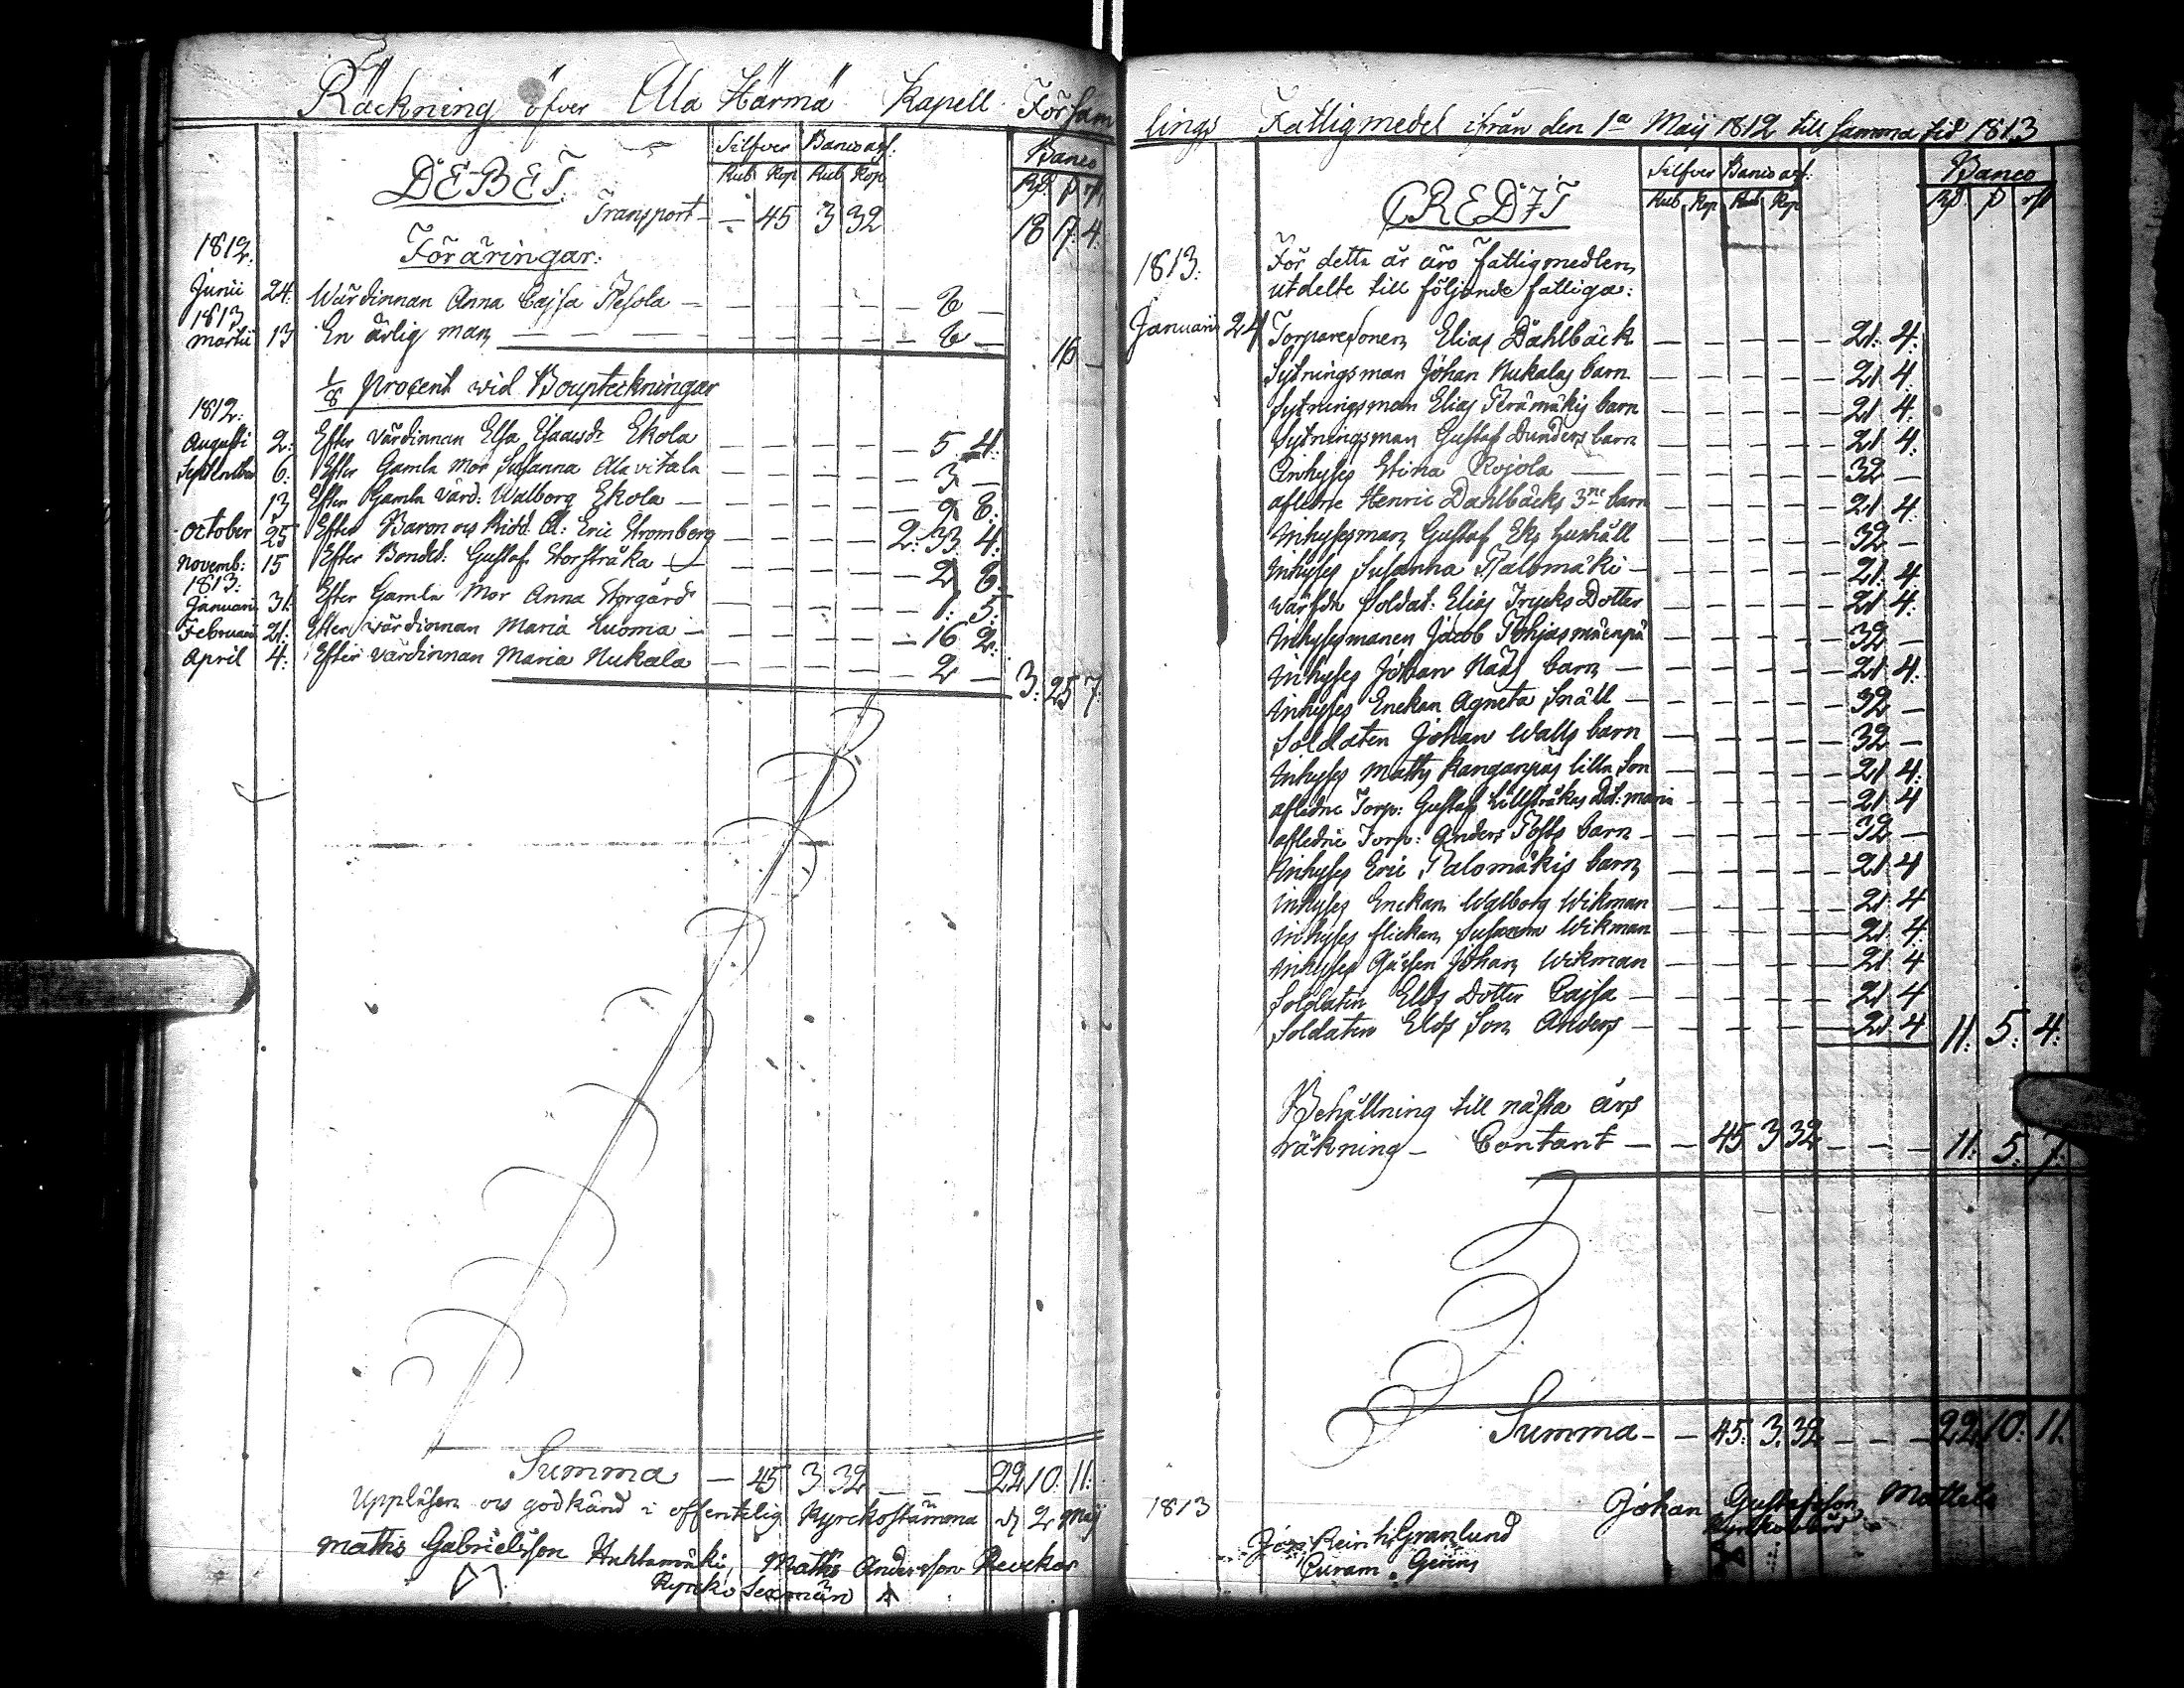 Räckning öfver Ala Härmä Kapell Försam
DEBET.
Silfver Banco ass:
Rub Kop Rub Kop
Banco
Rd. ß rst
Transport — — 45 3 32 18 17 4.
1812.
Föräringar:
Junii 24. Wärdinnan Anna Cajsa Pesola — — — — — — 8 —
1813
Martii 13 En ärlig man — — — — — — 8 — 16 —
1/8 procent vid Bouptekningar
1812.
Augusti 2: Efter värdinnan Elsa Esaiasdr Ekola — — — — — 5 4.
September 6: Efter Gamla Mor Susanna Alavitala — — — — — 3 —
13 Efter Gamla värd: Walborg Ekola — — — — — 2 8.
October 25 Efter Baron och Ridd. Eric Stromberg — — — — 2: 33 4.
Novemb: 15 Efter Bonded: Gustaf Storsträka — — — — — 2 8.
1813:
Januarii 31. Efter Gamla Mor Anna Storgård — — — — 1: 5.
Februarii 21: Efter värdinnan Maria Luoma — — — — — 16 2.
April 4: Efter värdinnan Maria Nukala — — — — — 2 — 3: 25 7.
Summa — 45 3 32 — — — 22 10. 11.
Uppläsen och godkänd i offentelig Kyrckostämma d. 2 Maij
Mathis Gabrielsson Huhtamäki, Mathis Andersson
Kyrcko Sexmän
lings Fattigmedel ifrån den 1a Maij 1812 till samma tid 1813
CREDIT
Silfver Banco asf:
Rub Kop Rub Kop
Banco
Rd ß rst
1813: För detta år äro fattigmedlen
utdelte till följande fattiga:
Januarii 24 Torparesonen Elias Dahlbäck — — — — — 21. 4.
Sytningsman Johan Nukalas barn — — — — — 21 4.
Sytningsman Elias Perämäkis barn — — — — — 21 4.
Sytningsman Gustaf Dunders barn — — — — — 21 4.
Inhyses Stina Rojola — — — — — 32 —
afledne Henric Dahlbäcks 3ne barn — — — — — 21 4.
Inhysesman Gustaf Eks hushåll — — — — — 32 —
Inhyses Susanna Palomäki — — — — — 21. 4
Värfda Soldat: Elias Trycks Dotter — — — — — 21 4.
Inhysesmanen Jacob Pohjasmäenpä — — — — — 32 —
Inhyses Johan Näds barn — — — — — 21 4.
Inhyses Enckan Agneta Snäll — — — — — 32 —
Soldaten Johan Walls barn — — — — — 32 —
Inhyses Matts Kanganpäs lilla Son — — — — — 21 4.
afledne Torp: Gustaf Lillsträkas Dot: Maria — — — — — 21 4
afledne Torp: Anders Tofts barn — — — — — 32 —
Inhyses Eric Palomäkis barn — — — — — 21 4
Inhyses Enckan Walborg Wikman — — — — — 21 4
Inhyses flickan Susanna Wikman — — — — — 21 4.
Inhyses Gåssen Johan Wikman — — — — — 21 4
Soldaten Elds Dotter Cajsa — — — — — 21 4
Soldaten Elds Son Anders — — — — — 21 4 11: 5: 4:
Behållning till nästa års
räkning — Contant — — 45 3 32 — — — 11: 5: 7.
Summa — — 45. 3. 32 — — — 22. 10. 11.
1813 Johan Gustafsson Mattila
Kyrkovärd
Granlund